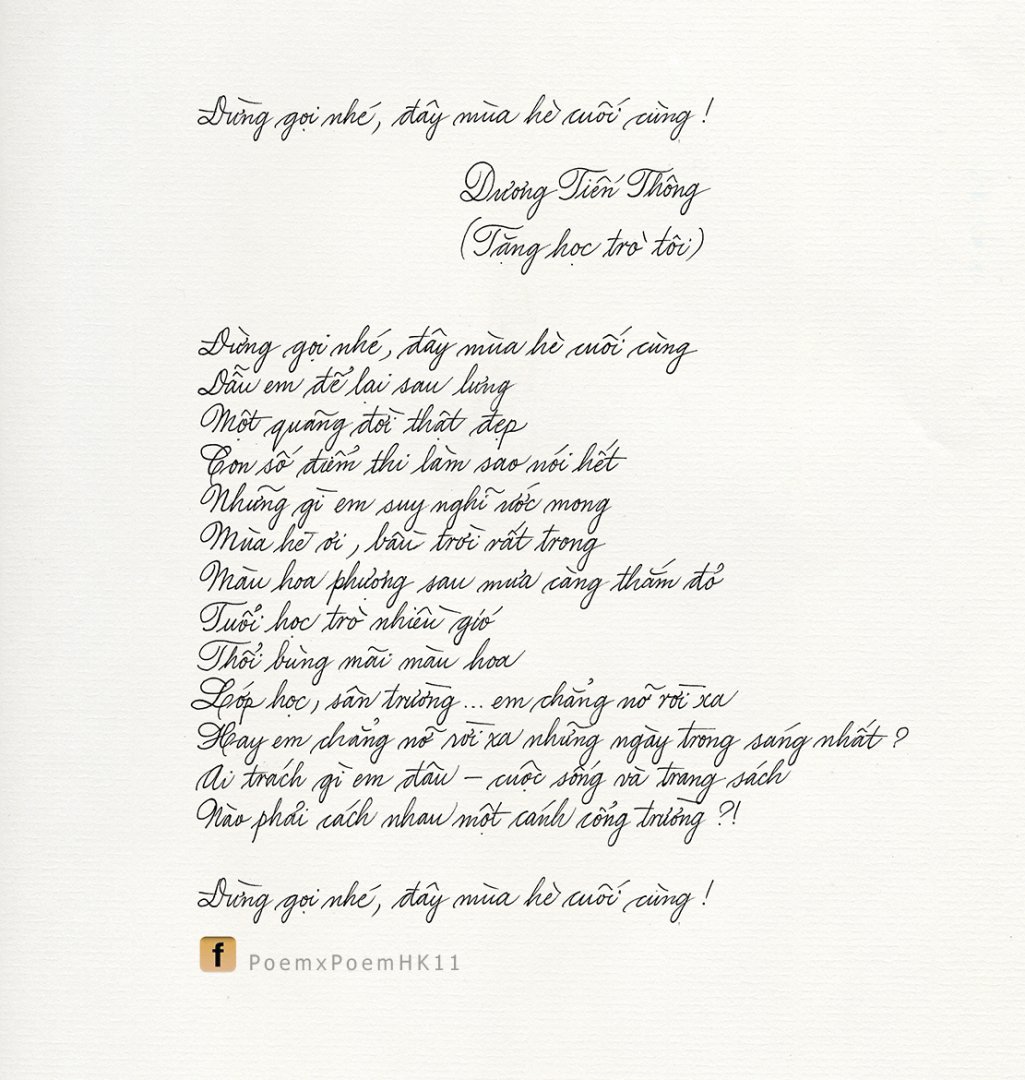 Đừng gọi nhé, đây mùa hè cuối cùng !
Dương Tiến Thông
(Tặng học trò tôi)
Đừng gọi nhé, đây mùa hè cuối cùng
Dẫu em để lại sau lưng
Một quãng đời thật đẹp
Con số điểm thi làm sao nói hết
Những gì em suy nghĩ ước mong
Mùa hè ơi, bầu trời rất trong
Màu hoa phượng sau mưa càng thắm đỏ
Tuổi học trò nhiều gió
Thổi bùng mãi màu hoa
Lớp học, sân trường... em chẳng nỡ rời xa
Hay em chẳng nỡ rời xa những ngày trong sáng nhất ?
Ai trách gì em đâu – cuộc sống và trang sách
Nào phải cách nhau một cánh cổng trường ?!
Đừng gọi nhé, đây mùa hè cuối cùng !
f PoemxPoemHK11